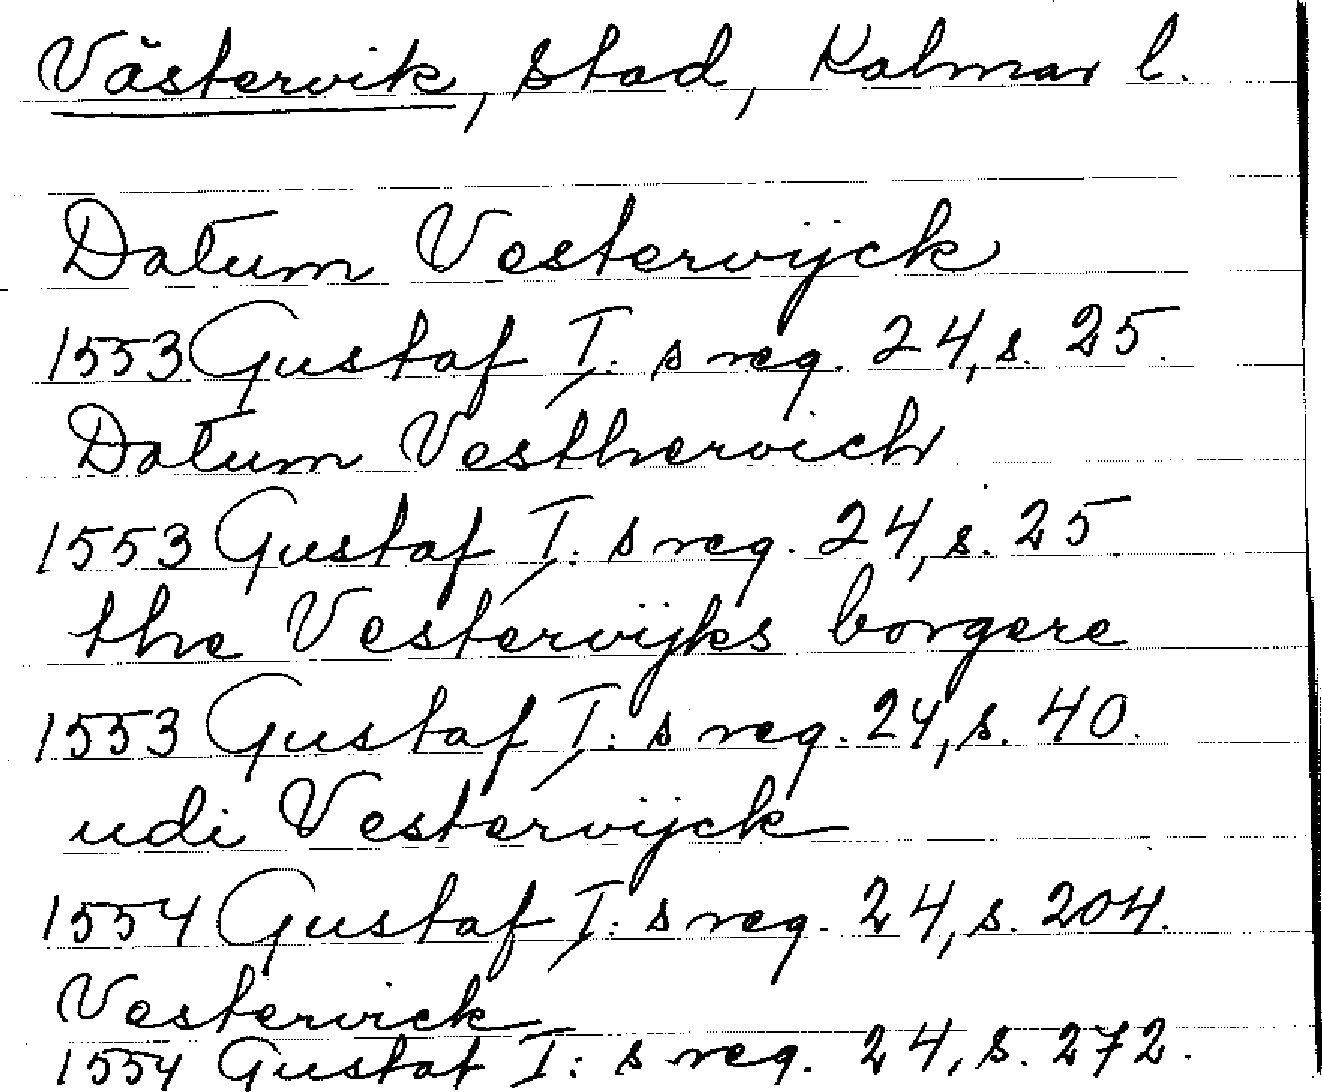 Västervik, stad, Kalmar l.
Datum Vestervijck
1553 Gustaf I:s reg. 24, s. 25.
Datum Vesthervich
1553 Gustaf I:s reg. 24, s. 25.
the Vestervijks borgere
1553 Gustaf I:s reg. 24, s. 40.
udi Vestervijck
1554 Gustaf I:s reg. 24, s. 204.
Vestervick
1554 Gustaf I:s reg. 24, s. 272.